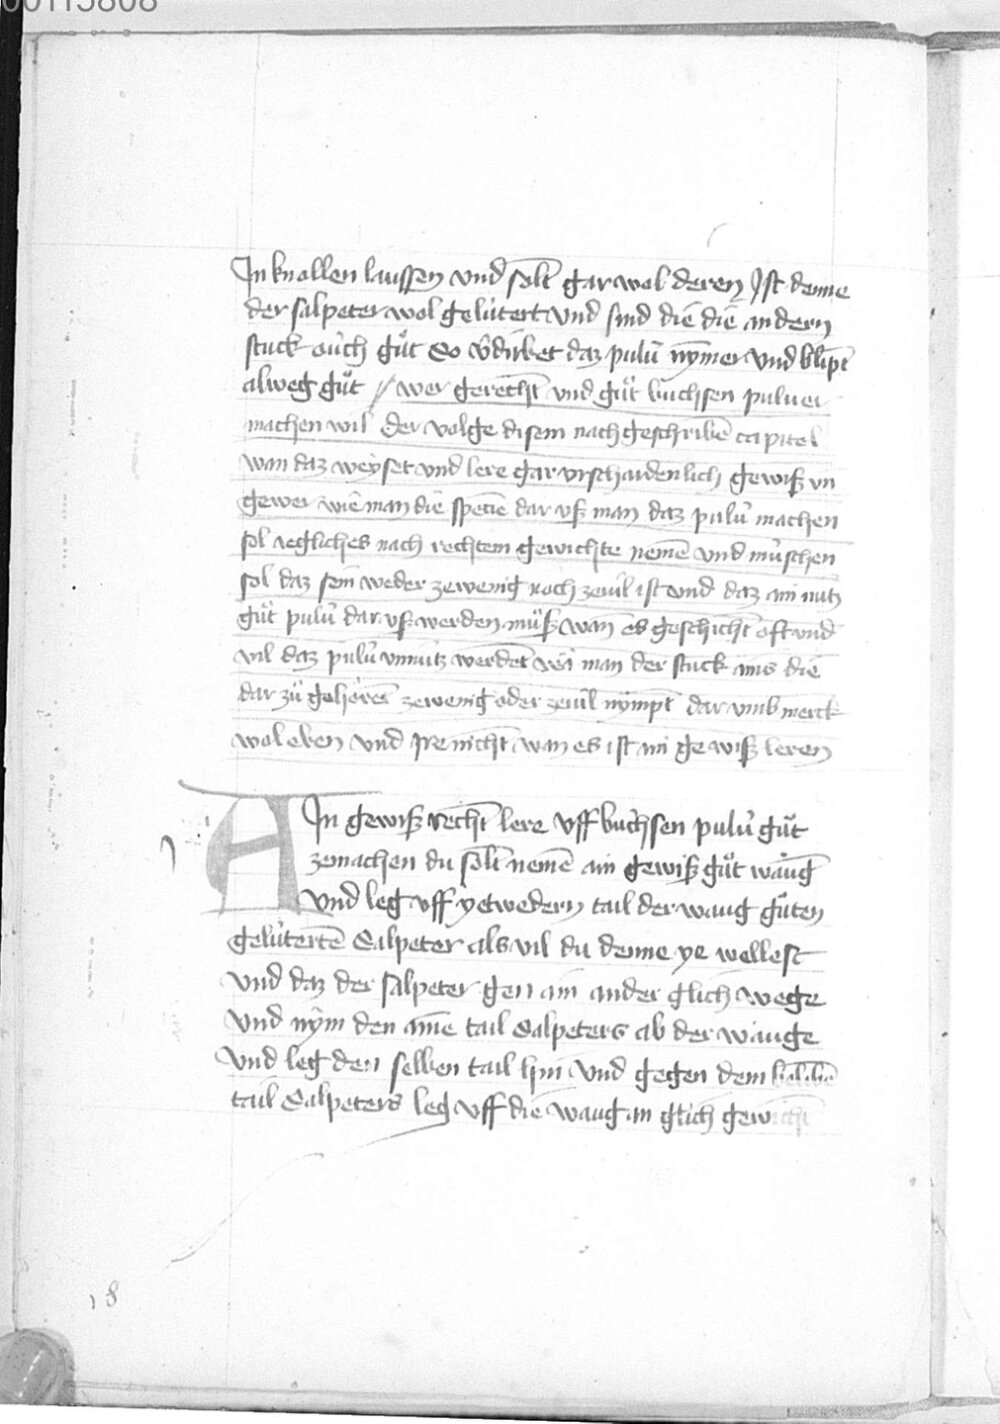 00115808
In knollen laussen vnd solt gar wol deren Ist denne
der salpeter wol gelütert vnd sind die die andern
stuck oůch gůt So v̄dirbet daz pulu̅ nymer vnd blipt
alweg gůt // wer gerecht vnd gůt buchsen puluer
machen wil der volge disem nach geschribē capitel
wan daz weyset vnd lere gar vrschaidenlich gewiß vn̄
gewer wie man die specie dar vß man daz pulu̅ machen
sol yegliches nach rechtem gewichte nemē vnd muschen
sol daz sein weder zewenig noch zeuil ist vnd daz ain nutz
gůt pulu̅ dar vß werden můß wan es geschicht oft vnd
vil daz pulu̅ vnnütz werdet wa man der stuck ains die
dar zů gehörēt zewenig oder zeuil nympt dar vmb merck
wol eben vnd irre nicht wan es ist ain gewiß leren
AIn gewiß recht lere vff buchsen pulu̅ gůt
zemachen du solt nemē ain gewiß gůt waug
vnd leg vff yetwedern tail der waug gůten
gelütertē Salpeter als vil du denne ye wellest
vnd daz der salpeter gen ain ander glich wege
vnd nym den aine tail Salpeters ab der wauge
vnd leg den selben tail hin vnd gegen dem belibē
tail Salpeters leg vff die waug in glich gewicht
18